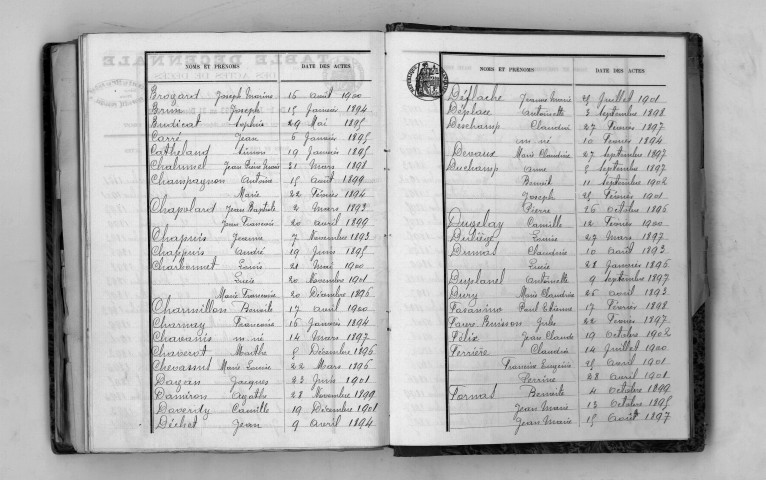 NOMS ET PRÉNOMS DATE DES ACTES
Broyard Joseph Marius 16 août 1900
Brun Joseph 15 Janvier 1894
Budicat Sophie 29 Mai 1895
Carré Jean 6 Janvier 1895
Catheland Simon 19 Janvier 1895
Chalumel Jean Pierre Marie 31 Mars 1898
Champagnon Antoine 15 Août 1899
Marie 22 Février 1894
Chapolard Jean Baptiste 2 Mars 1893
Jean Francois 20 avril 1899
Chapuis Jeanne 7 Novembre 1893
Chappuis André 19 Juin 1895
Charbonnet Louis 21 Mai 1900
Lucie 20 Novembre 1901
Marie Francoise 20 Décembre 1896
Charmillon Benoite 17 avril 1900
Charnay Francois 16 Janvier 1894
Chavanis m. né 14 Mars 1897
Chaverot Marthe 5 Décembre 1896
Chevassut Marie Louise 22 Mars 1896
Dargan Jacques 23 Juin 1901
Damiron Agathe 28 Novembre 1899
Daverdy Camille 19 Décembre 1901
Déchet Jean 9 avril 1894
NOMS ET PRÉNOMS DATE DES ACTES
Deflache Jeanne Marie 25 Juillet 1901
Deplace Antoinette 3 Septembre 1898
Deschamp Claudine 27 Février 1897
m. né 10 Février 1894
Devaux Marie Claudine 27 Septembre 1897
Duchamp Anne 5 Septembre 1897
Benoit 11 Septembre 1902
Joseph 25 Février 1901
Pierre 16 Octobre 1896
Dugelay Camille 12 Février 1900
Duliège Louise 27 Mars 1897
Dumas Claudine 10 Août 1893
Lucie 28 Janvier 1896
Duplanel Antoinette 9 Septembre 1897
Dury Marie Claudine 26 avril 1893
Fasanino Paul Etienne 17 Février 1898
Favre Buisson Jules 22 Février 1897
Félix Jean Claude 19 Octobre 1902
Ferrière Claudine 14 Juillet 1900
Francis Eugénie 25 avril 1901
Perrine 28 avril 1901
Fornas Benoite 4 Octobre 1899
Jean Marie 13 Octobre 1895
Jean Marie 15 Août 1897